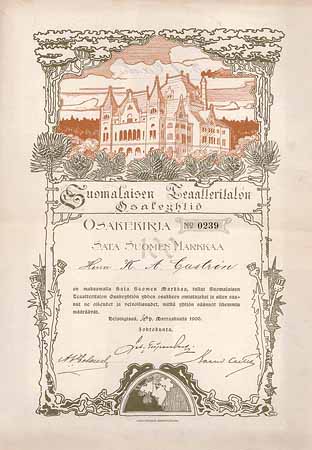 Suomalaisen Teaatteritalon
Osakeyhtiö
OSAKEKIRJA No 0239
SATA SUOMEN MARKKAA
Herra K. A. Castrén
on maksamalla Sata Suomen Markkaa, tullut Suomalaisen
Teaatteritalon Osakeyhtiön yhden osakkeen omistajaksi ja siten saa-
nut ne oikeudet ja velvollisuudet, mitkä yhtiön säännöt lähemmin
määräävät.
Helsingissä, Marraskuuta 1900.
Johtokunta.